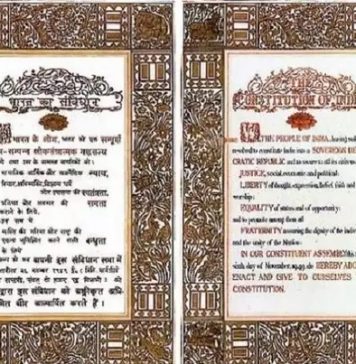 भारत का संविधान
भारत के लोग, भारत को एक सम्पूर्ण
-सम्पन्न लोकतंत्रात्मक गणराज्य
तथा उस के समस्त नागरिकों को :
आर्थिक और राजनैतिक न्याय,
विचार, अभिव्यक्ति, धर्म
और उपासना की स्वतंत्रता,
प्रतिष्ठा और अवसर की समता
कराने के लिये,
उन सब में
व्यक्ति की गरिमा और राष्ट्र की
एकता सुनिश्चित करने वाली बन्धुता
के लिये
अपनी इस संविधान सभा में
इस संविधान को
और आत्मार्पित करते हैं।
THE
CONSTITUTION OF INDIA
WE, THE PEOPLE OF INDIA, having
resolved to constitute India into a SOVEREIGN DE
CRATIC REPUBLIC and to secure to all its
JUSTICE, social, economic and political;
LIBERTY of thought, expression, belief, faith and
worship;
EQUALITY of status and of opportunity;
and to promote among them all
FRATERNITY assuring the dignity of the
and the unity of the Nation;
IN OUR CONSTITUENT ASSEMBLY
sixth day of November, 1949, do HEREBY ADO
ENACT AND GIVE TO OURSELVES
CONSTITUTION.